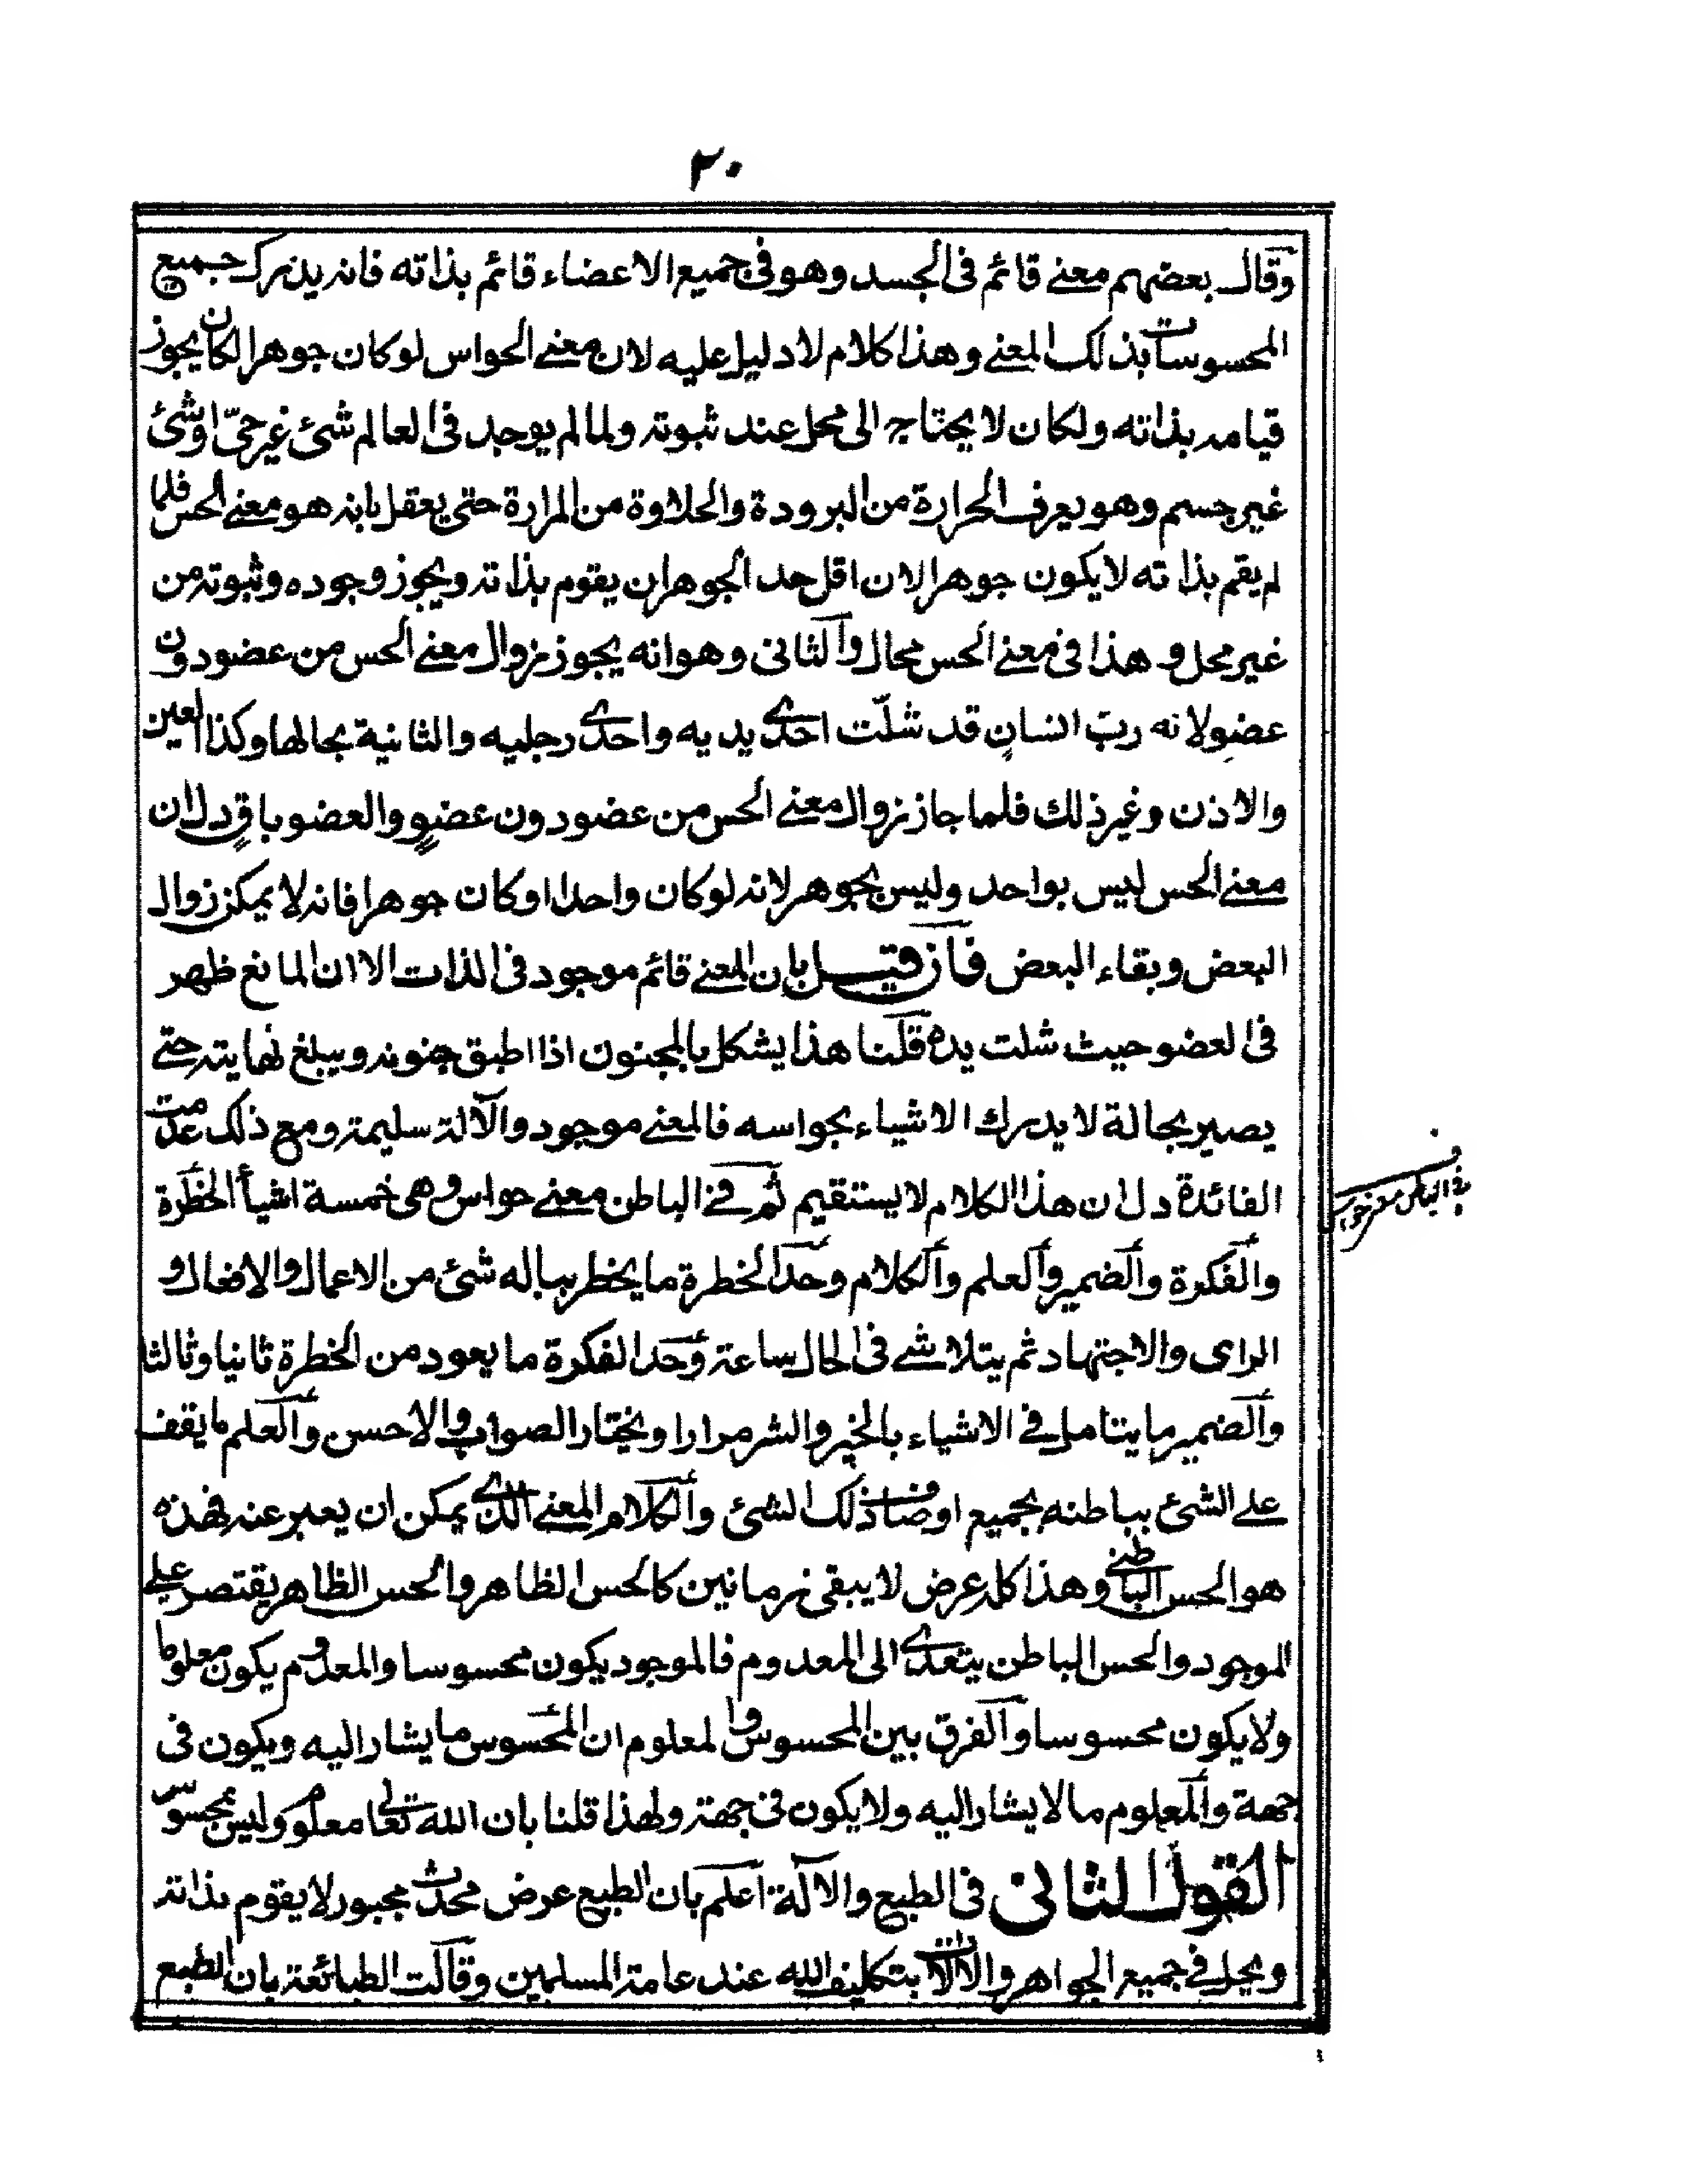 ٢٠
وقال بعضهم معنے قائم فى الجسد وهو فى جميع الاعضاء قائم بذاته فانه يدرك جميع
المحسوسات بذلك المعنے وهذا كلام لا دليل عليه لان معنے الحواس لو كان جوهرا لكان يجوز
قيامه بذاته ولكان لا يحتاج الى محل عند ثبوته ولما لم يوجد فى العالم شئ غير حىّ او شئ
غير جسم وهو يعرف الحرارة من البرودة والحلاوة من المرارة حتى يعقل بانه هو معنے الحس فلما
لم يقم بذاته لا يكون جوهرا لان اقل حد الجوهر ان يقوم بذاته ويجوز وجوده وثبوته من
غير محل وهذا فى معنے الحس محال والثانى وهو انه يجوز زوال معنے الحس من عضو دون
عضو لانه ربّ انسان قد شلّت احدى يديه واحدى رجليه والثانية بحالها وكذا العين
والاذن وغير ذلك فلما جاز زوال معنے الحس من عضو دون عضوٍ والعضو باقٍ دل ان
معنے الحس ليس بواحد وليس بجوهر لانه لو كان واحدا او كان جوهرا فانه لا يمكن زوال
البعض وبقاء البعض فان قيل بان المعنے قائم موجود فى الذات الا ان المانع ظهر
فى العضو حيث شلت يده قلنا هذا يشكل بالمجنون اذا اطبق جنونه ويبلغ نهايته حتے
يصير بحالة لا يدرك الاشياء بحواسه فالمعنے موجود والآلة سليمة ومع ذلك عدمت
الفائدة دل ان هذا الكلام لا يستقيم ثم فے الباطن معنے حواس وهى خمسة اشيأ الخطرة
والفكرة والضمير والعلم والكلام وحد الخطرة ما يخطر بباله شئ من الاعمال والافعال و
الراى والاجتهاد ثم يتلاشے فى الحال ساعة وحد الفكرة ما يعود من الخطرة ثانيا وثالثا
والضمير ما يتامل فے الاشياء بالخير والشر مرارا ويختار الصواب والاحسن والعلم ما يقف
علے الشئ بباطنه بجميع اوصاف ذلك الشئ والكلام المعنے الذى يمكن ان يعبر عنه فهذه
هو الحس الباطنے وهذا كله عرض لا يبقى زمانين كالحس الظاهر والحس الظاهر يقتصر علے
الموجود والحس الباطن يتعدى الى المعدوم فالموجود يكون محسوسا والمعدوم يكون معلوما
ولا يكون محسوسا والفرق بين المحسوس والمعلوم ان المحسوس ما يشار اليه ويكون فى
جهة والمعلوم ما لا يشار اليه ولا يكون فى جهة ولهذا قلنا بان الله تعالى معلوم وليس بمحسوس
القول الثانى فى الطبع والآلة اعلم بان الطبع عرض محدث مجبور لا يقوم بذاته
ويحل فے جميع الجواهر والآلات بتكليف الله عند عامة المسلمين وقالت الطبائعة بان الطبع